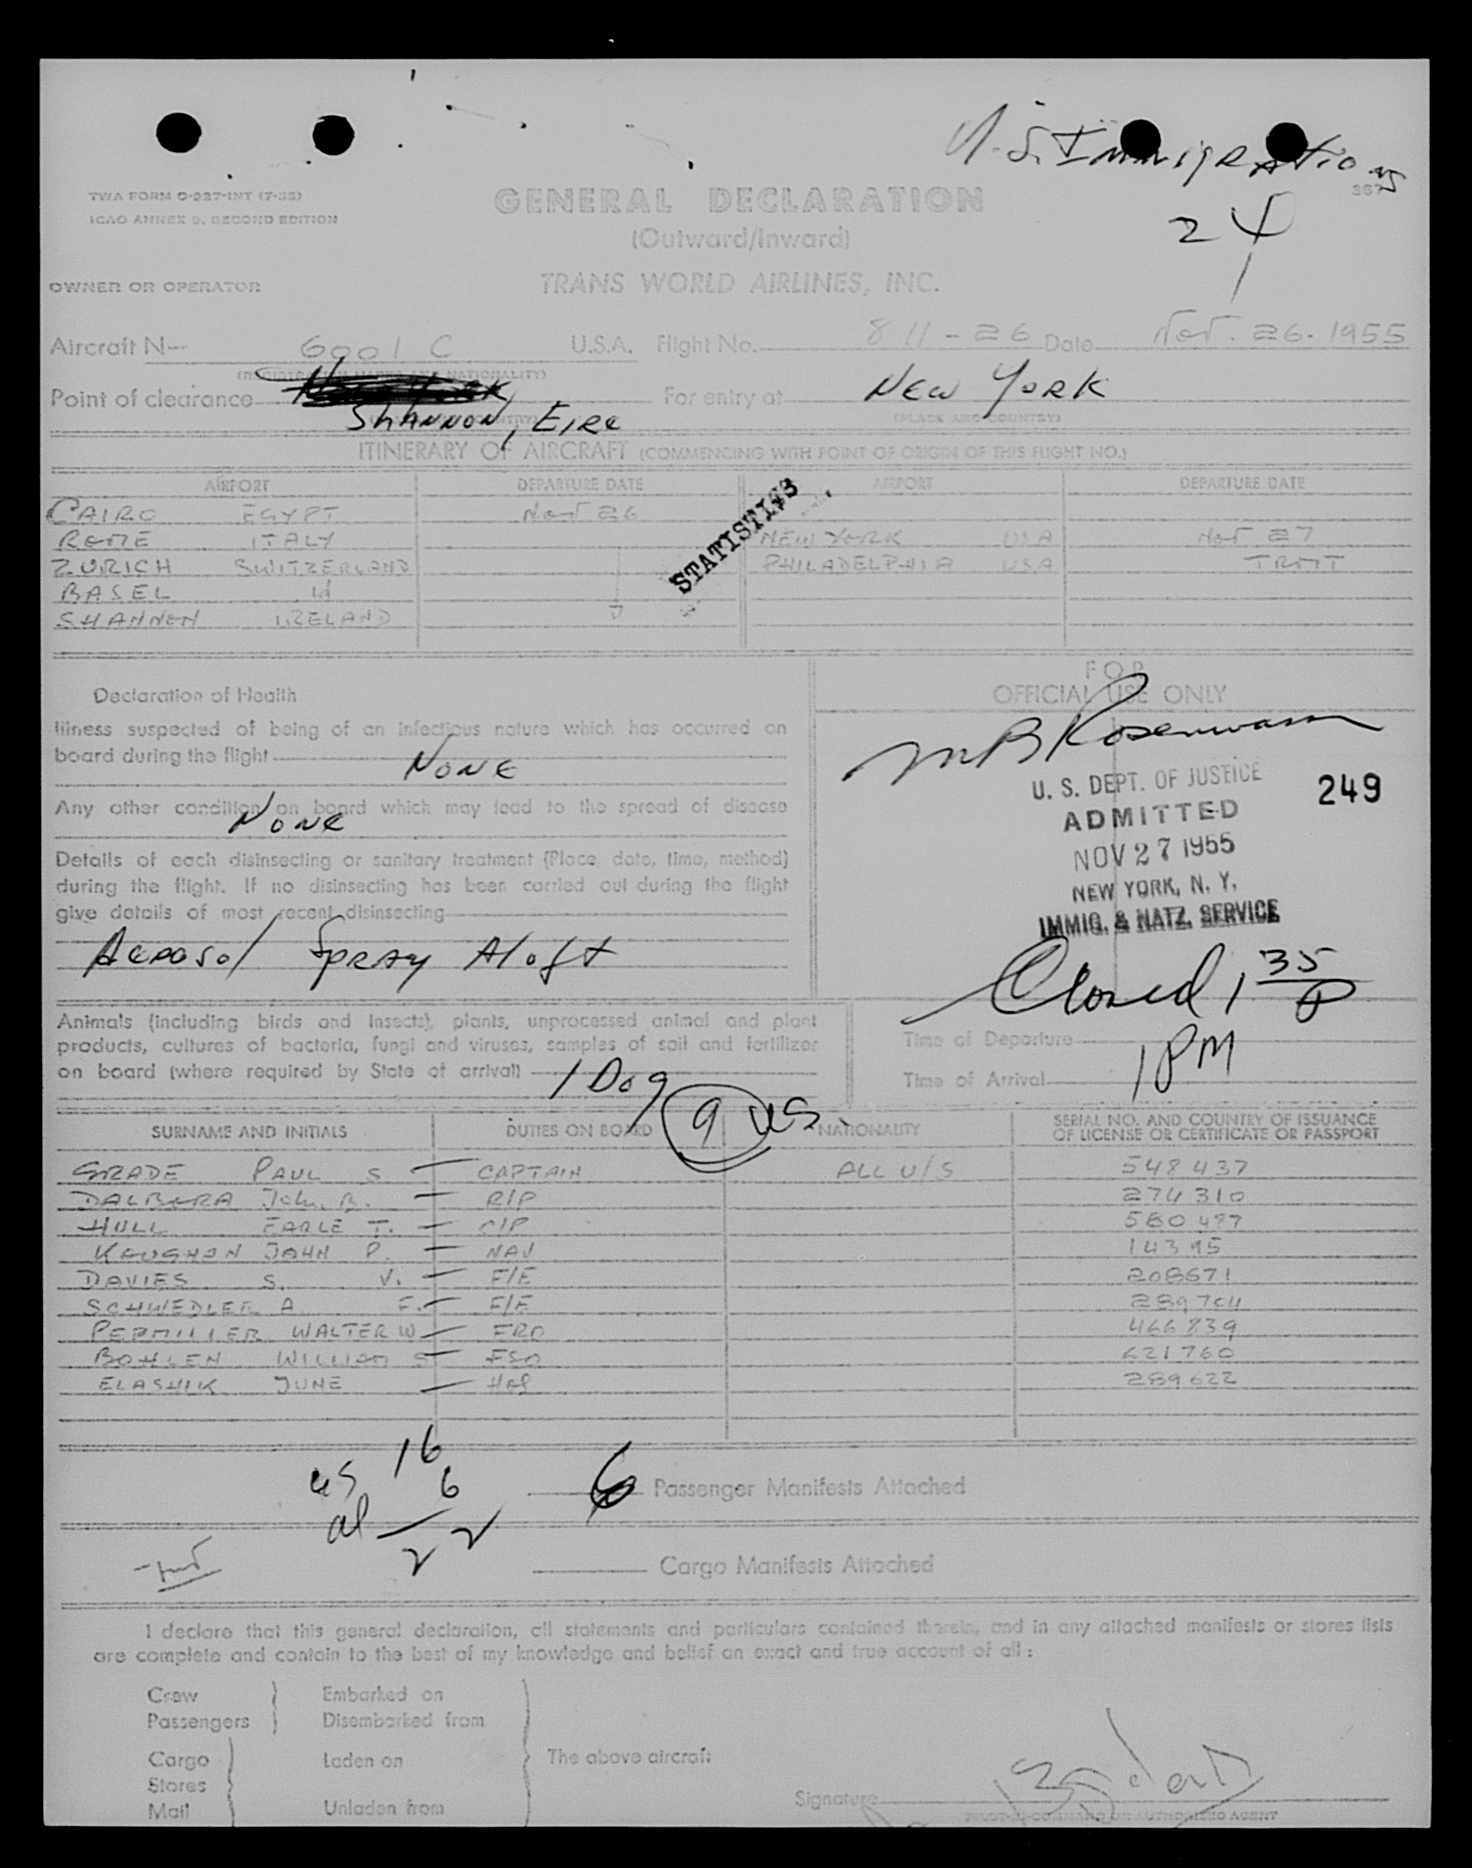 U.S. Immigrations
24
TWA FORM O-927-INT (7-55)
ICAO ANNEX 9, SECOND EDITION
GENERAL DECLARATION
(Outward/Inward)
OWNER OR OPERATOR
TRANS WORLD AIRLINES, INC.
Aircraft N-- 6901 C U.S.A. Flight No. 811-26 Date Nov. 26. 1955
(REGISTRATION MARKS AND NATIONALITY)
Point of clearance New York For entry at New York
Shannon, Eire
(PLACE AND COUNTRY)
ITINERARY OF AIRCRAFT (COMMENCING WITH POINT OF ORIGIN OF THIS FLIGHT NO.)
AIRPORT DEPARTURE DATE AIRPORT DEPARTURE DATE
CAIRO EGYPT Nov 26
ROME ITALY NEW YORK USA Nov 27
ZURICH SWITZERLAND PHILADELPHIA USA TRMT
BASEL
SHANNON IRELAND
STATISTICS
Declaration of Health
Illness suspected of being of an infectious nature which has occurred on
board during the flight
None
Any other condition on board which may lead to the spread of disease
None
Details of each disinsecting or sanitary treatment (Place, date, time, method)
during the flight. If no disinsecting has been carried out during the flight
give details of most recent disinsecting
Aerosol Spray Aloft
FOR
OFFICIAL USE ONLY
M B Rosenwasser
U. S. DEPT. OF JUSTICE
ADMITTED
249
NOV 27 1955
NEW YORK, N. Y.
IMMIG. & NATZ. SERVICE
Closed 1 35 P
Animals (including birds and insects), plants, unprocessed animal and plant
products, cultures of bacteria, fungi and viruses, samples of soil and fertilizer
on board (where required by State of arrival) 1 Dog
Time of Departure
Time of Arrival 1 PM
9 US.
SURNAME AND INITIALS DUTIES ON BOARD NATIONALITY SERIAL NO. AND COUNTRY OF ISSUANCE
OF LICENSE OR CERTIFICATE OR PASSPORT
GRADE PAUL S. CAPTAIN ALL U/S 548437
John B. R/P 274310
HULL EARLE T. 560497
JOHN P. NAV 14395
DAVIES S. V. F/E 208671
SCHWEDLER A F. F/E 289704
WALTER W FRO 466839
BOHLEN WILLIAM S FSO 621760
ELASHIK JUNE 289622
us 16
al 6
22
6 Passenger Manifests Attached
Cargo Manifests Attached
I declare that this general declaration, all statements and particulars contained therein, and in any attached manifests or stores lists
are complete and contain to the best of my knowledge and belief an exact and true account of all:
Crew Embarked on
Passengers Disembarked from
Cargo Laden on The above aircraft
Stores
Mail Unladen from
Signature
PILOT-IN-COMMAND OR AUTHORIZED AGENT